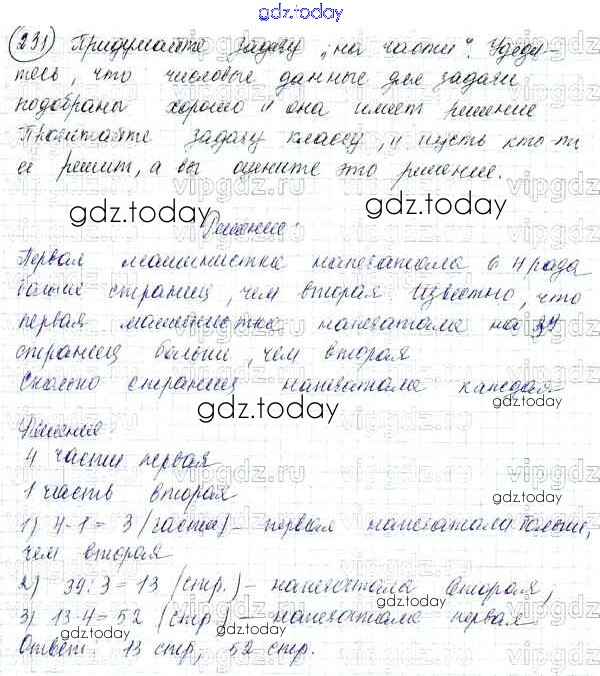 gdz.today
231) Придумайте задачу „на части". Убеди-
тесь, что числовые данные для задачи
подобраны хорошо и она имеет решение.
Прочитайте задачу классу, и пусть кто-то
ее решит, а вы оцените это решение.
gdz.today gdz.today
Решение:
Первая машинистка напечатала в 4 раза
больше страниц, чем вторая. Известно, что
первая машинистка напечатала на 39
страниц больше, чем вторая
Сколько страниц напечатала каждая
gdz.today gdz.today
Решение:
4 части первая
1 часть вторая
gdz.today
1) 4-1 = 3 (части) – первая напечатала больше,
чем вторая
2) 39:3 = 13 (стр.) – напечатала вторая,
3) 13·4 = 52 (стр.) – напечатала первая.
gdz.today gdz.today
Ответ: 13 стр, 52 стр.